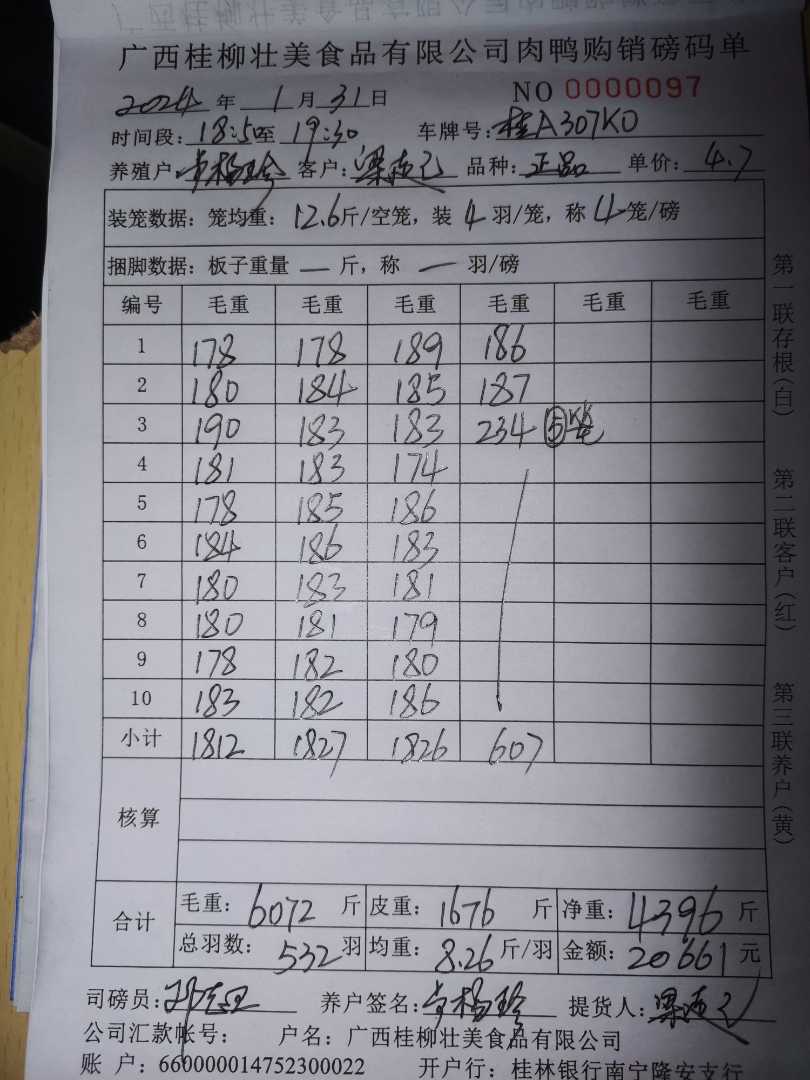 广西桂柳壮美食品有限公司肉鸭购销磅码单
2024 年 1 月 31 日 NO 0000097
时间段: 18:50至 19:30 车牌号: 桂A307K0
养殖户: 客户: 梁 品种: 正品 单价: 4.7
装笼数据: 笼均重: 12.6斤/空笼, 装 4 羽/笼, 称 4笼/磅
捆脚数据: 板子重量 — 斤, 称 — 羽/磅
编号 毛重 毛重 毛重 毛重 毛重 毛重
1 178 178 189 186
2 180 184 185 187
3 190 183 183 234 ⑤笼
4 181 183 174
5 178 185 186
6 184 186 183
7 180 183 181
8 180 181 179
9 178 182 180
10 183 182 186
小计 1812 1827 1826 607
核算
合计 毛重: 6072 斤 皮重: 1676 斤 净重: 4396 斤
总羽数: 532 羽 均重: 8.26 斤/羽 金额: 20661 元
司磅员: 养户签名: 提货人: 梁
公司汇款帐号: 户名: 广西桂柳壮美食品有限公司
账 户: 660000014752300022 开户行: 桂林银行南宁隆安支行
第一联存根(白)
第二联客户(红)
第三联养户(黄)